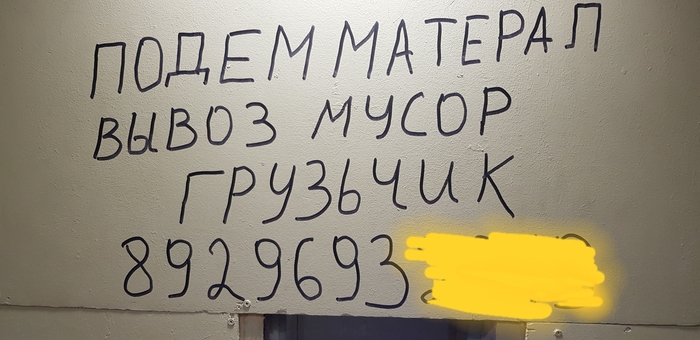 ПОДЕМ МАТЕРАЛ
ВЫВОЗ МУСОР
ГРУЗЬЧИК
8929693